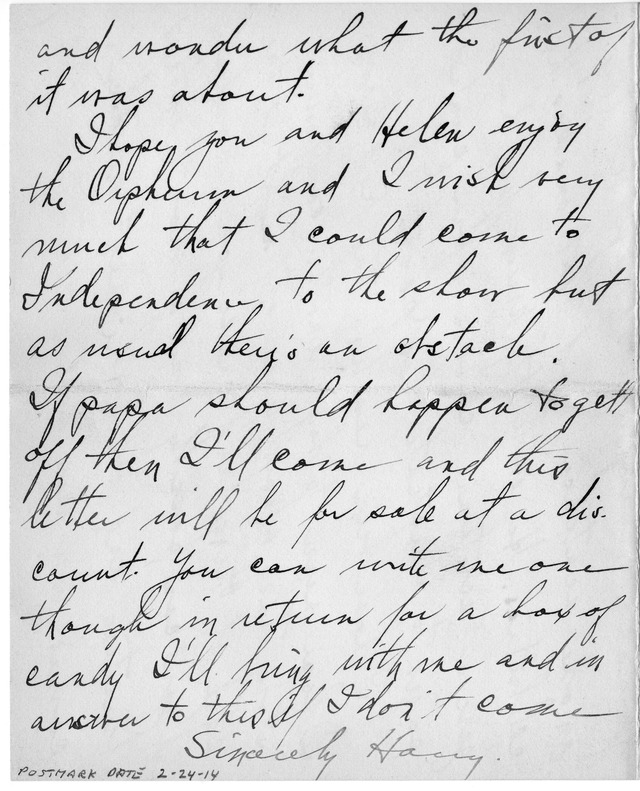 and wonder what the first of
it was about.
I hope you and Helen enjoy
the Orpheum and I wish very
much that I could come to
Independence to the show but
as usual there's an obstacle.
If papa should happen to gett
off then I'll come and this
letter will be for sale at a dis-
count. You can write me one
though in return for a box of
candy I'll bring with me and in
answer to this if I don't come
Sincerely Harry.
POSTMARK DATE 2-24-14